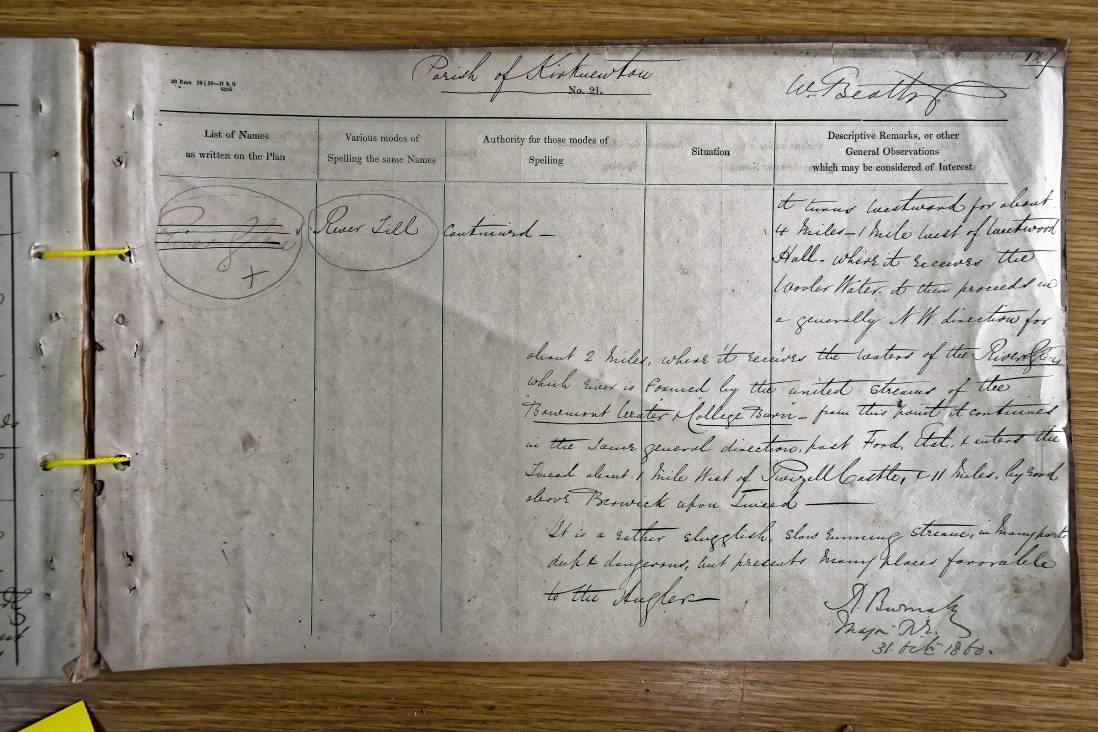 Parish of Kirknewton
No. 21.
W. Beatty
List of Names
as written on the Plan
Various modes of
Spelling the same Names
Authority for those modes of
Spelling
Situation
Descriptive Remarks, or other
General Observations
which may be considered of Interest
River Till
Continued —
it turns westward for about
4 Miles — 1 Mile West of Weetwood
Hall. where it receives the
Wooler Water. it then proceeds in
a generally N.W. direction for
about 2 Miles, where it receives the waters of the River Glen,
which river is formed by the united streams of the
"Bowmont Water & College Burn — from this point it continues
in the same general direction, past Ford, Etal, & enters the
Tweed about 1 Mile West of Twizell Castle, & 11 Miles, by road
above Berwick upon Tweed —
It is a rather slugglish, slow running stream, in many parts
deep & dangerous, but presents many places favorable
to the Angler —
Major R.E.
31 Oct 1860.